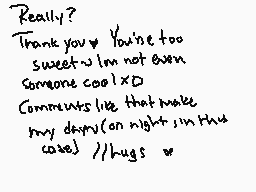 Really?
Thank you ♥ You're too
sweet ~ Im not even
someone cool xD
Comments like that make
my days (on night, in this
case) //hugs ♥